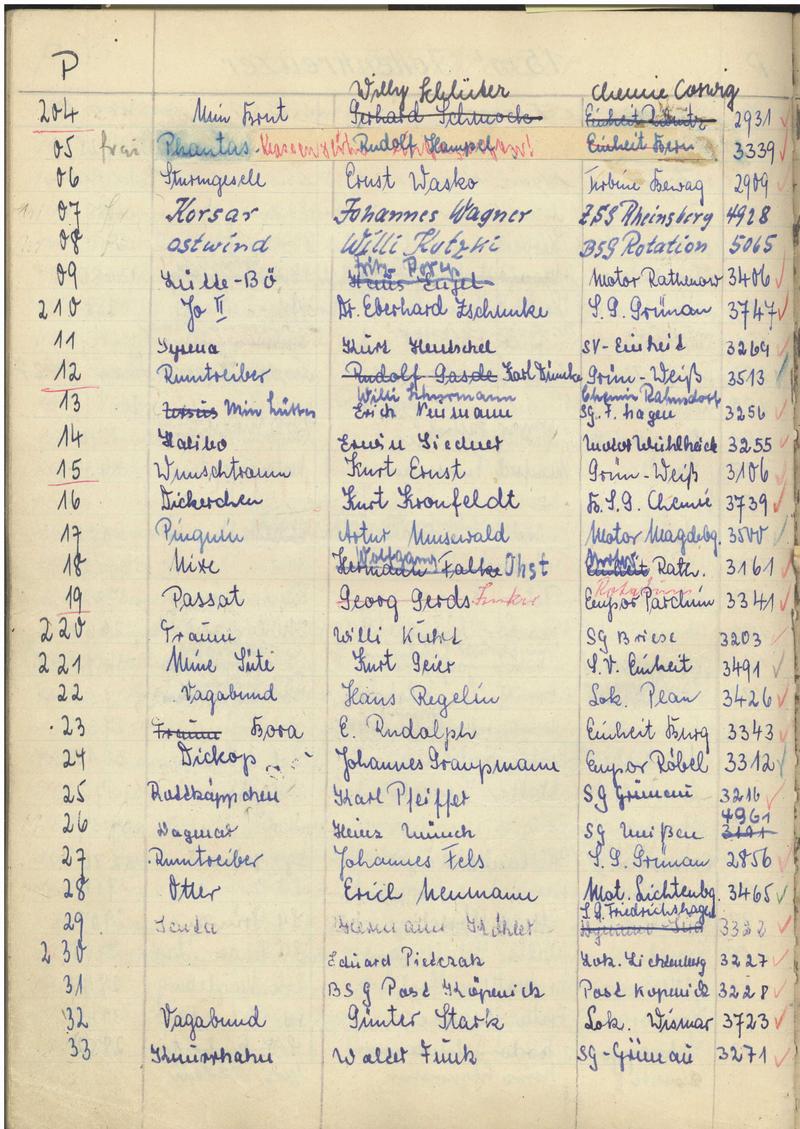 P
Willy Schlüter Chemie Coswig
204 Min Brut Gerhard Schmock Einheit 2931
05 frei Phantas Rudolf Hampel Einheit Bern 3339
06 Sturmgesell Ernst Wasko Turbine Bewag 2909
07 Korsar Johannes Wagner ZSG Rheinsberg 4928
08 Ostwind Willi Kutzki BSG Rotation 5065
Fritz
09 Lütte-Bö Engel Motor Rathenow 3406
210 Jo II Dr. Eberhard Zschunke S.G. Grünau 3747
11 Kurt Hentschel SV-Einheit 3269
12 Rumtreiber Rudolf Gasde Karl Grün-Weiß 3513
Willi Chemie Rahnsdorf
13 Min Lütten Erich Neumann Sg. F. hagen 3256
14 Erwin Motor Wuhlheide 3255
15 Wunschtraum Kurt Ernst Grün-Weiß 3106
16 Dickerchen Kurt Kronfeldt B.S.G. Chemie 3739
17 Pinguin Artur Musewald Motor Magdebg. 3500
Wolfgang
18 Nixe Hermann Falke Ohst Einheit Rath. 3161
Rotation
19 Passat Georg Gerds Empor Parchim 3341
220 Traum Willi SG Briese 3203
221 Mine Süte Kurt Geier S.V. Einheit 3491
22 Vagabund Hans Regelin Lok. Plau 3426
23 Traum Bora E. Rudolph Einheit Burg 3343
24 Dickop Johannes Graupmann Empor Röbel 3312
25 Rotkäppchen Karl Pfeiffer SG Grünau 3216
4961
26 Dagmar Heinz Münch SG Meißen 3191
27 Rumtreiber Johannes Fels S.G. Grünau 2856
28 Otter Erich Neumann Mot. Lichtenbg. 3465
S.G. Friedrichshagen
29 Senta Hermann Köhler 3322
230 Eduard Pietczak Lok. Lichtenberg 3227
31 BSG Post Köpenick Post Köpenick 3228
32 Vagabund Günter Stark Lok. Wismar 3723
33 Knurrhahn Walter Funk SG-Grünau 3271